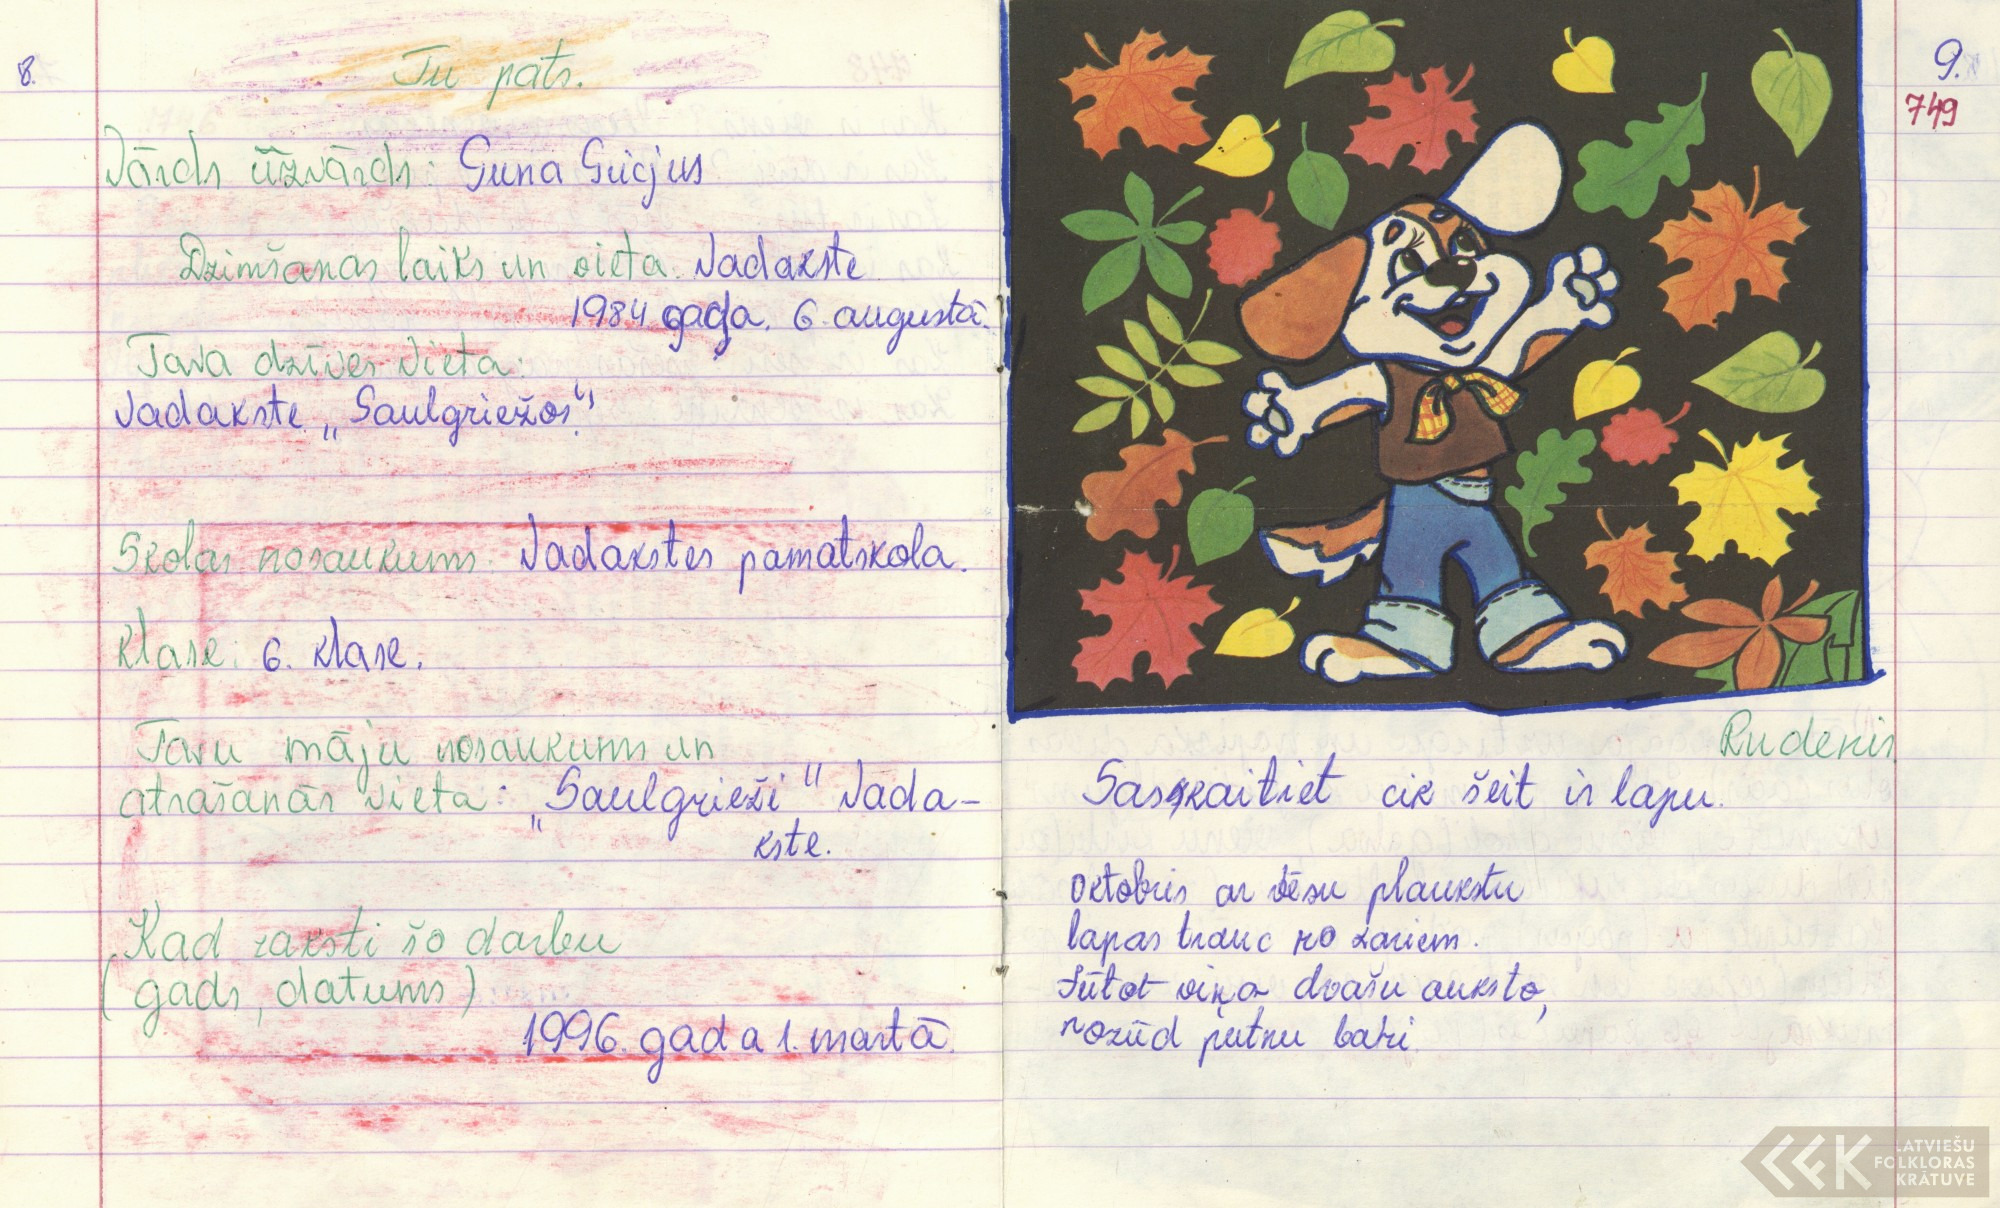 8.
Tu pats.
Vārds ūzvārds: Guna Gūcjus
Dzimšanas laiks un vieta. Vadakste
1984 gada. 6. augustā.
Tava dzīves vieta:
Vadakste „Saulgriežos."
Skolas nosaukums. Vadakstes pamatskola.
Klase: 6. klase.
Tavu māju nosaukums un
atrašanās vieta: „Saulgrieži" Vada-
kste.
Kad raksti šo darbu
(gads, datums)
1996. gada 1. martā.
9.
749
Rudenis
Sasskaitiet cik šeit ir lapu.
Oktobris ar vēsu plaukstu
lapas trauc no zariem.
Jūtot viņa dvašu auksto,
nozūd putnu bari.
LATVIEŠU
FOLKLORAS
KRĀTUVE